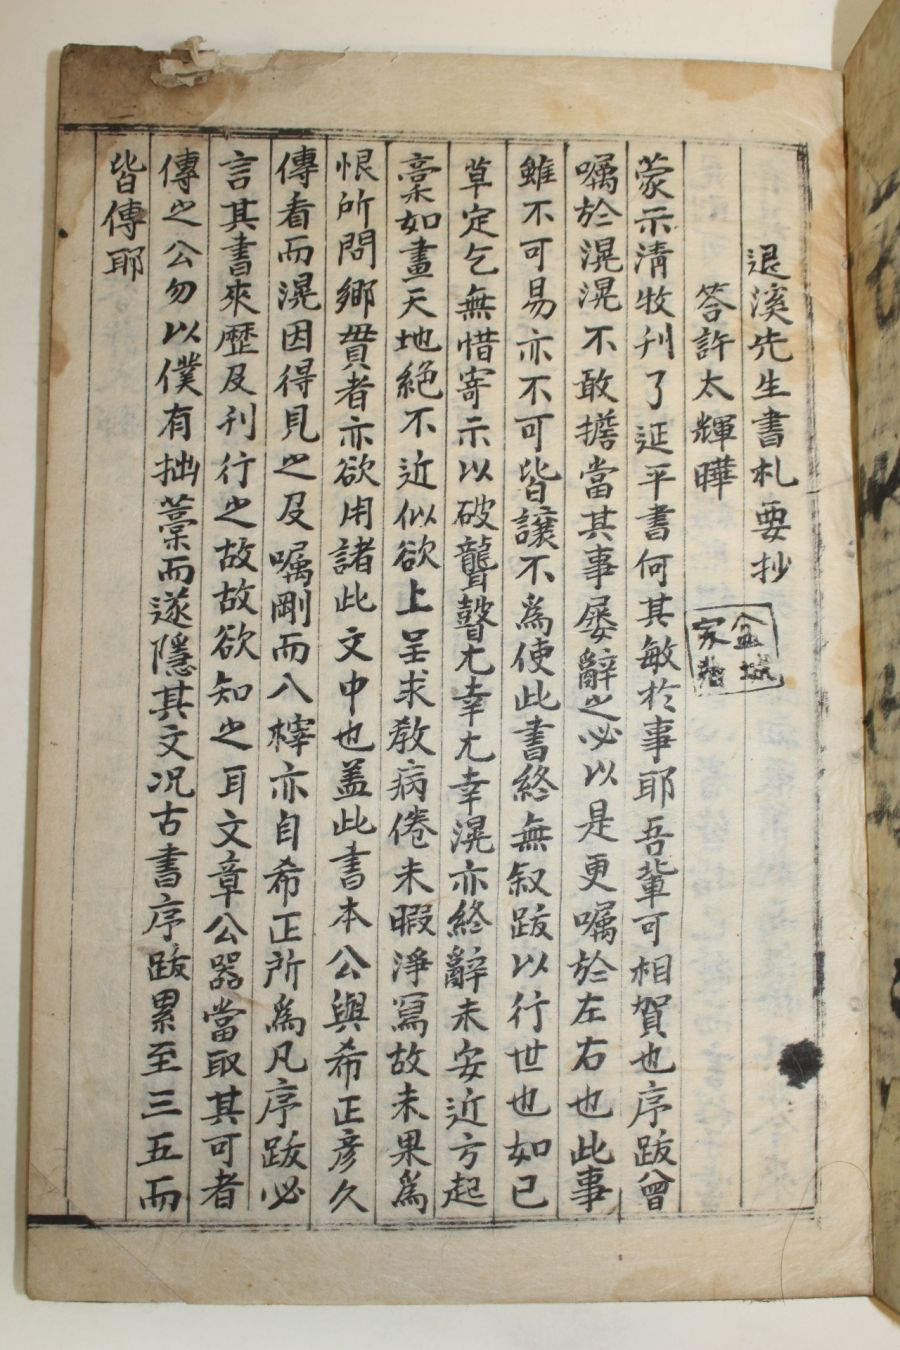 退溪先生書札要抄
答許太輝曄
蒙示清牧刊了延平書何其敏於事耶吾輩可相賀也序跋曾
囑於滉滉不敢擔當其事屡辭之必以是更囑於左右也此事
雖不可易亦不可皆讓不爲使此書終無叙跋以行世也如已
草定乞無惜寄示以破聾瞽尤幸尤幸滉亦終辭未安近方起
稾如畫天地絶不近似欲上呈求教病倦未暇淨寫故未果爲
恨所問鄉貫者亦欲用諸此文中也盖此書本公與希正彦久
傳看而滉因得見之及囑剛而入榟亦自希正所爲凡序跋必
言其書來歷及刊行之故故欲知之耳文章公器當取其可者
傳之公勿以僕有拙藁而遂隱其文况古書序跋累至三五而
皆傳耶